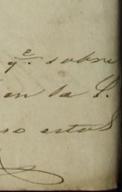 qᵉ. sobre
en la S.
so estos